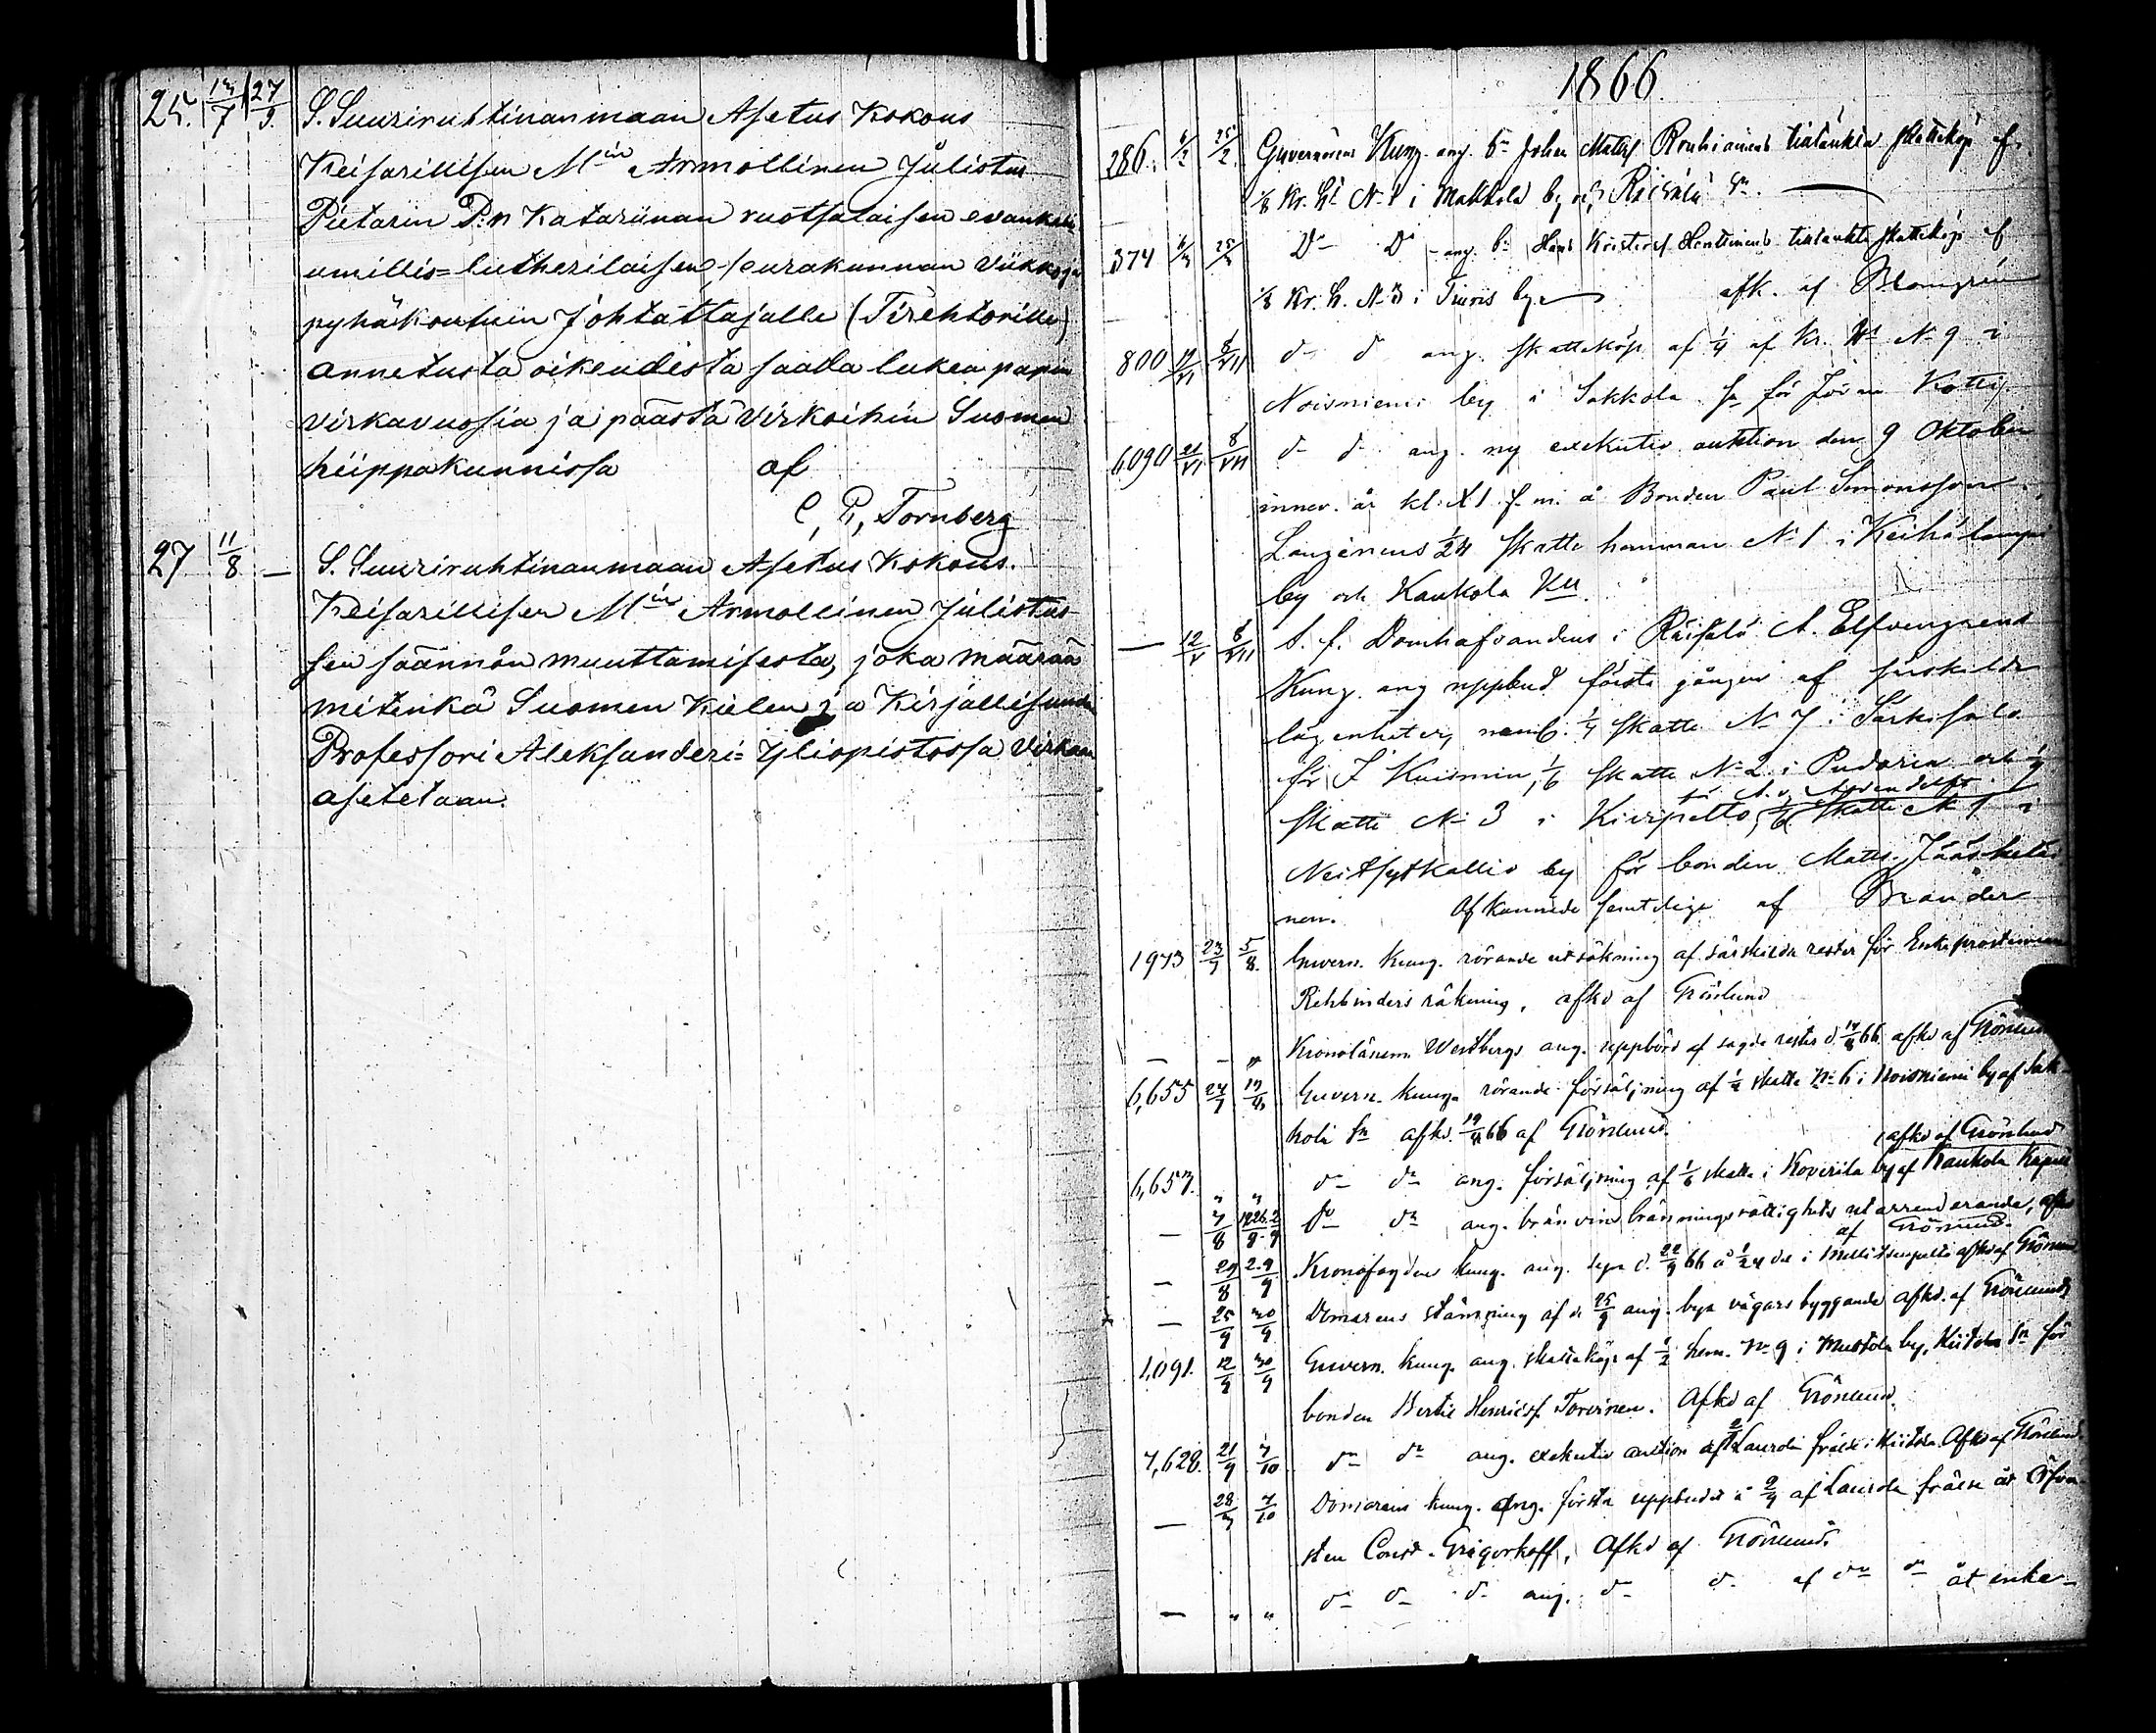 25. 13/7 27/9. S. Suuriruhtinanmaan Asetus Kokous
Keisarillisen M:in Armollinen Julistus
Pietarin P:n Katariinan ruotsalaisen evankeli
umillis=lutherilaisen seurakunnan viikko ja
pyhäkouluin Johtattajalle (Tirehtorille)
annetusta oikeudesta saada lukea papin
virkavuosia ja päästä Virkoihin Suomen
hiippakunnissa af
C. G. Tornberg
27 11/8 — S. Suuriruhtinanmaan Asetus Kokous.
Keisarillisen M:in Armollinen Julistus
sen säännön muuttamisesta, joka määrää
mitenkä Suomen Kielen ja Kirjallisuuden
Professori Aleksanderi=Yliopistossa Virkaan
asetetaan.
1866.
286. 6/2 25/2. Guvernörens Kung. ang. b:n Johan Matss. Rouhiainens tillänkta skatteköp af
1/8 Kr. ht N:o 1 i Makkola by och Räisälä Sn.
374 25/2 D:o D:o ang. b:n Hans Kristers. Henttinens tilltänkta skatteköp af
1/8 Kr. h. N:o 3 i Tiuris by afk. af Blomgrén
800 19/VI 8/VII d:o d:o ang. skatteköp af 1/4 af Kr. Ht N:o 9 i
Noisniemi by i Sakkola Sn för Jöran Kotti
6090 21/VI 8/VII d:o d:o ang. ny exekutiv auktion den 9 Oktober
innev. år kl. XI f.m. å Bonden Paul Simonsson
1/24 Skatte hemman N:o 1 i Keihälampi
by och Kaukola Kll.
— 12/V 8/VII t. f. Domhafvandens i Räisälä A. Elfvengrens
Kung. ang uppbud första gången af särskilda
lägenheter, neml. 1/4 skatte N:o 7 i Särkisalo
för J Kuismin, 1/6 skatte N:o 2 i Pudoria och 1/4
för A. v. Avendelft
Skatte N:o 3 i Kivipelto, 1/6 Skatte N:o 1 i
Neitsytkallio by för bonden Matts Jääskeläi
nen. Afkunnade samtelige af Brander
1973 23/7 5/8. Guvern. Kung. rörande utsökning af särskilda rester för Enkeprostinnan
Rehbinders räkning, afkd af Grönlund
— — „ Kronolänsm. Westbergs ang. uppbörd af sagde rester d. 19/8 66 afkd af Grönlund
6,655 24/7 19/8 Guvern. kung. rörande försäljning af 1/2 skatte N:o 6 i Noisniemi by af Sak
kola Sn afkd. 19/8 66 af Grönlund.
afkd af Grönlund
6,657. „ „ d:o d:o ang. försäljning af 1/6 skatte i Koverila by af Kaukola Kapell
— 7/8 d:o d:o ang. bränvins bränningsrättighets utarrenderande, afkd
af Grönlund.
— 29/8 2.9/9 Kronofogdens kung. ang. syn d. 22/9 66 å 1/24 del i afkd af Grönlund
— 25/9 30/9 Domarens stämning af d. 25/9 ang. bya vägars byggande afkd. af Grönlund
1,091. 12/9 30/9 Guvern. kung. ang. skatteköp af 1/2 hem. N:o 9 i Mustola by, Hiitola Sn för
bonden Bertil Henrikss. Torvinen. Afkd af Grönlund.
7,628. 21/9 7/10 d:o d:o ang. exekutiv auktion af Laurola fräls i Hiitola. Afkd af Grönlund
— 28/9 7/10 Domarens kung. ang. första uppbudet å af Laurola fräls åt Öfver
sten Const. Grigorkoff, Afkd af Grönlund.
— „ „ d:o d:o d:o ang. d:o d:o af d:o d:o åt enke-